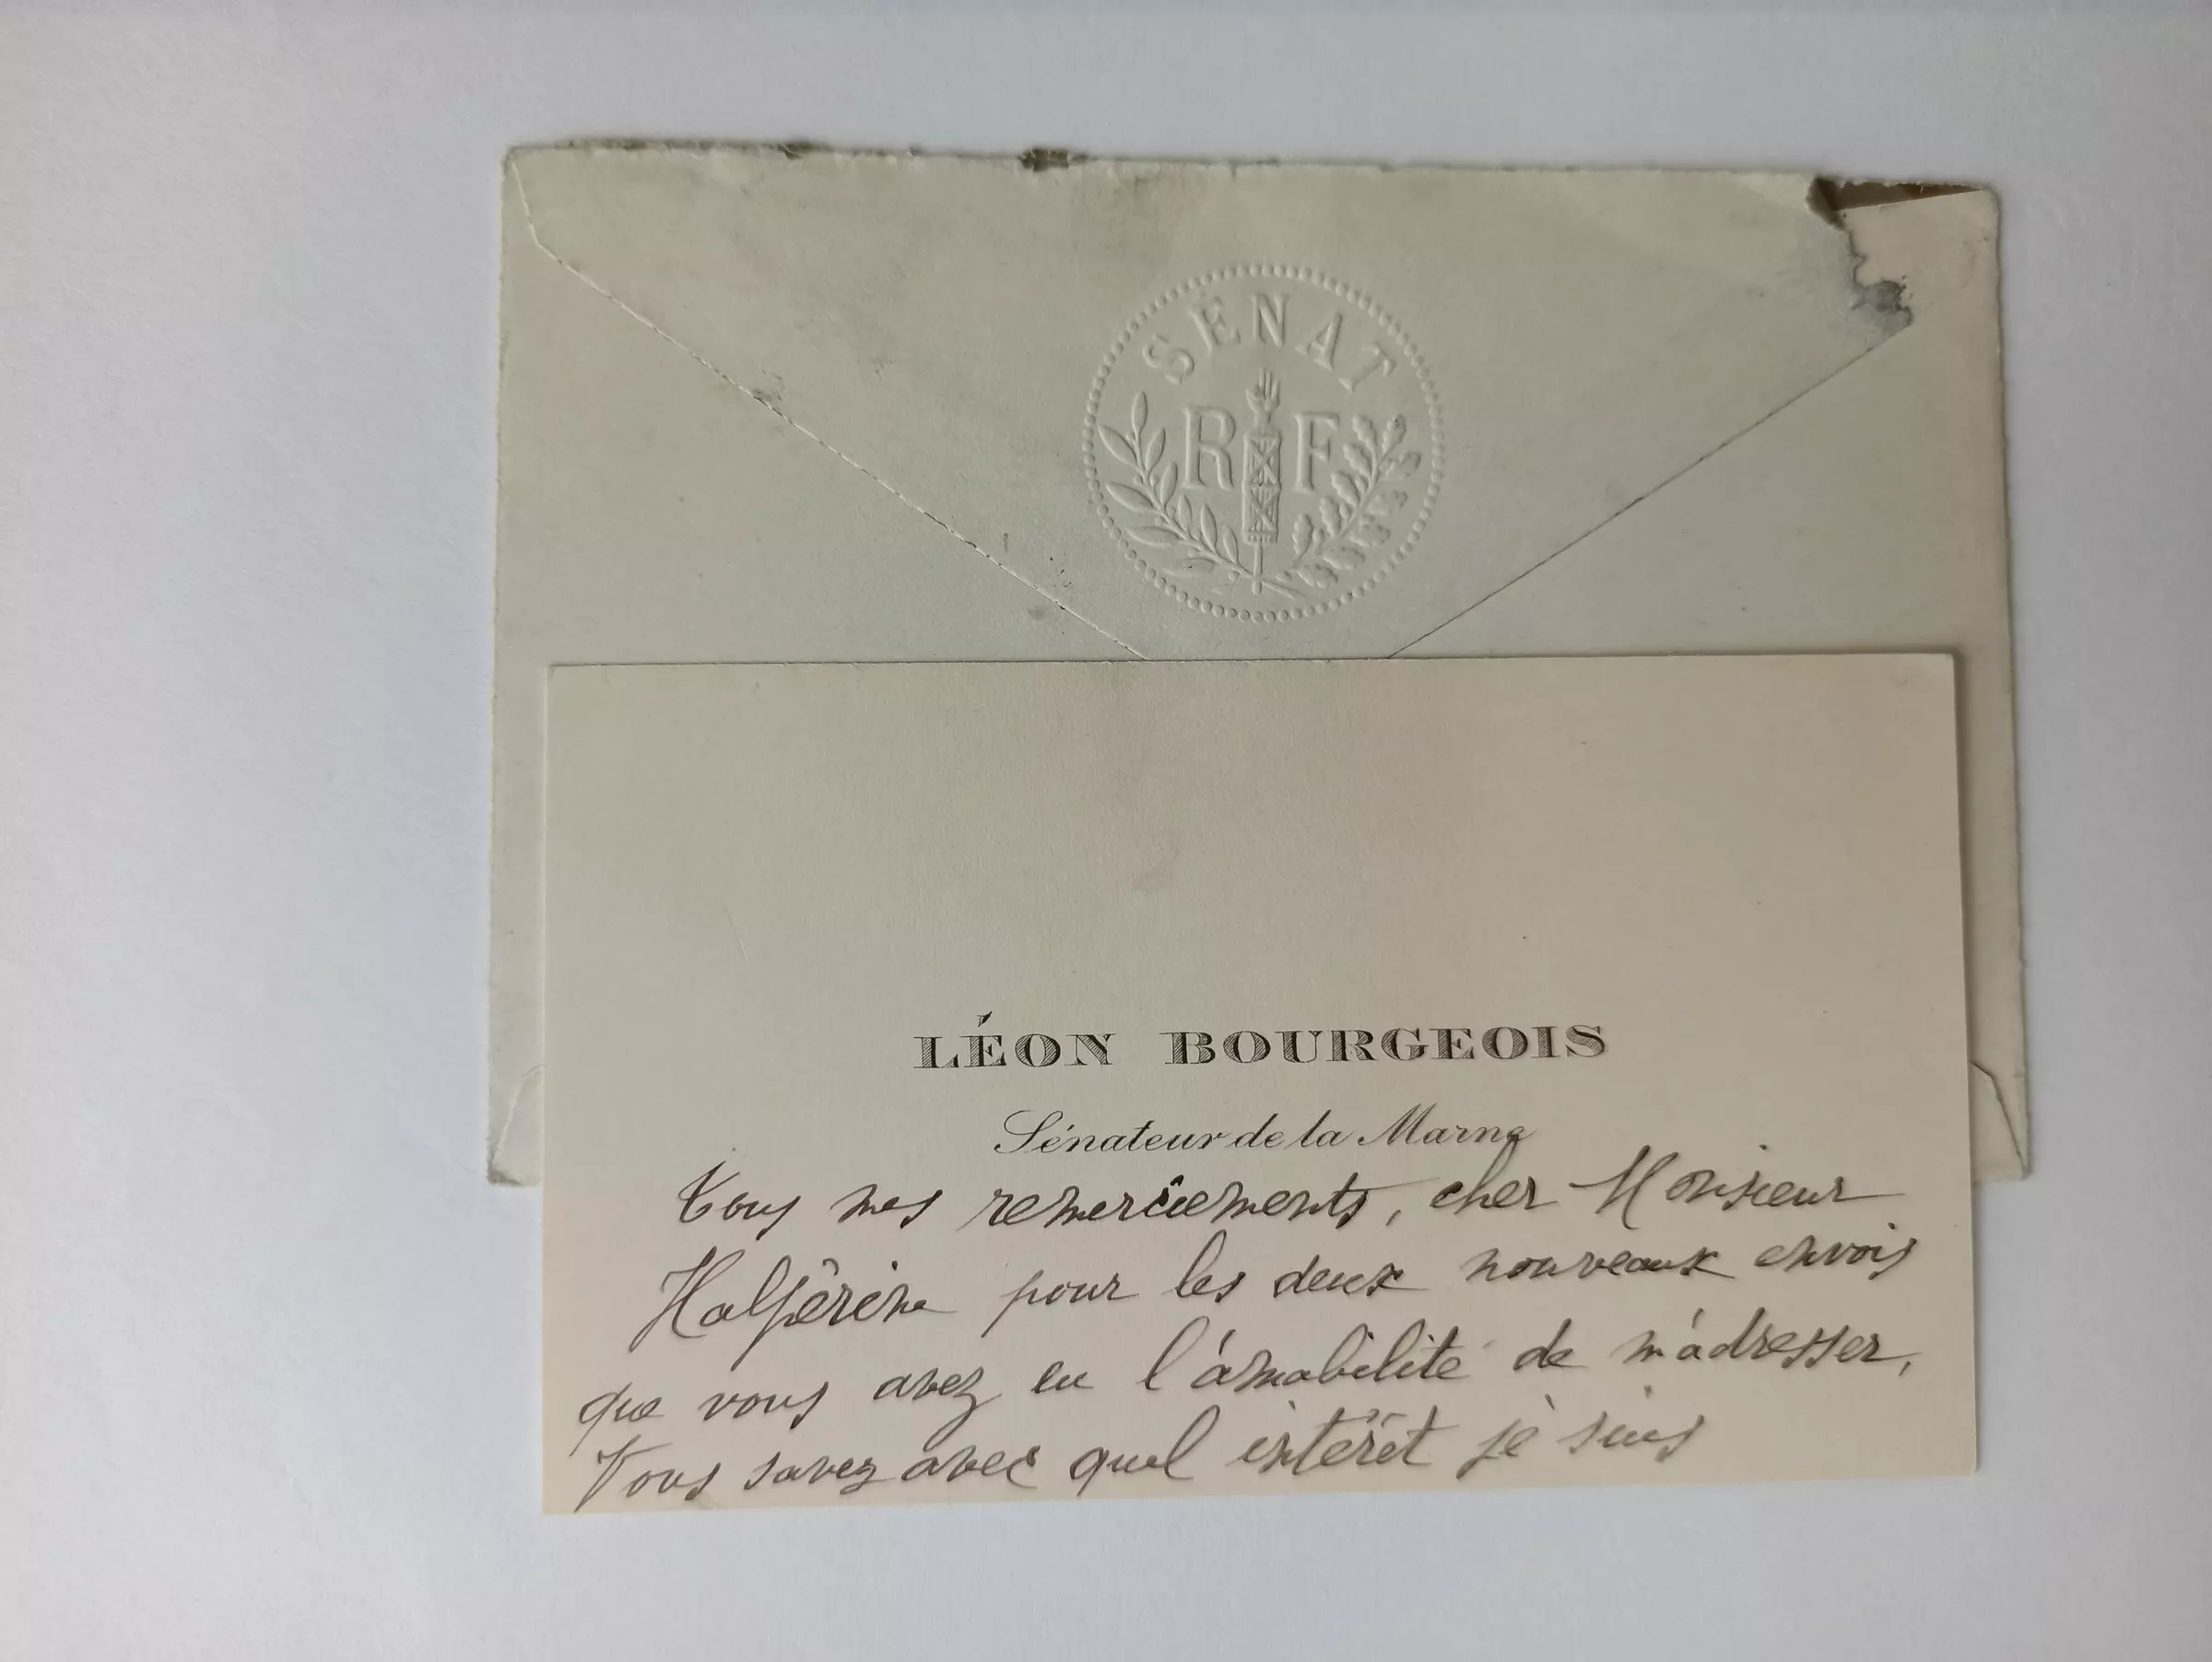 SÉNAT
R F
LÉON BOURGEOIS
Sénateur de la Marne
Tous mes remerciements, cher Monsieur
Halpérine pour les deux nouveaux envois
que vous avez eu l'amabilité de m'adresser,
Vous savez avec quel intérêt je suis